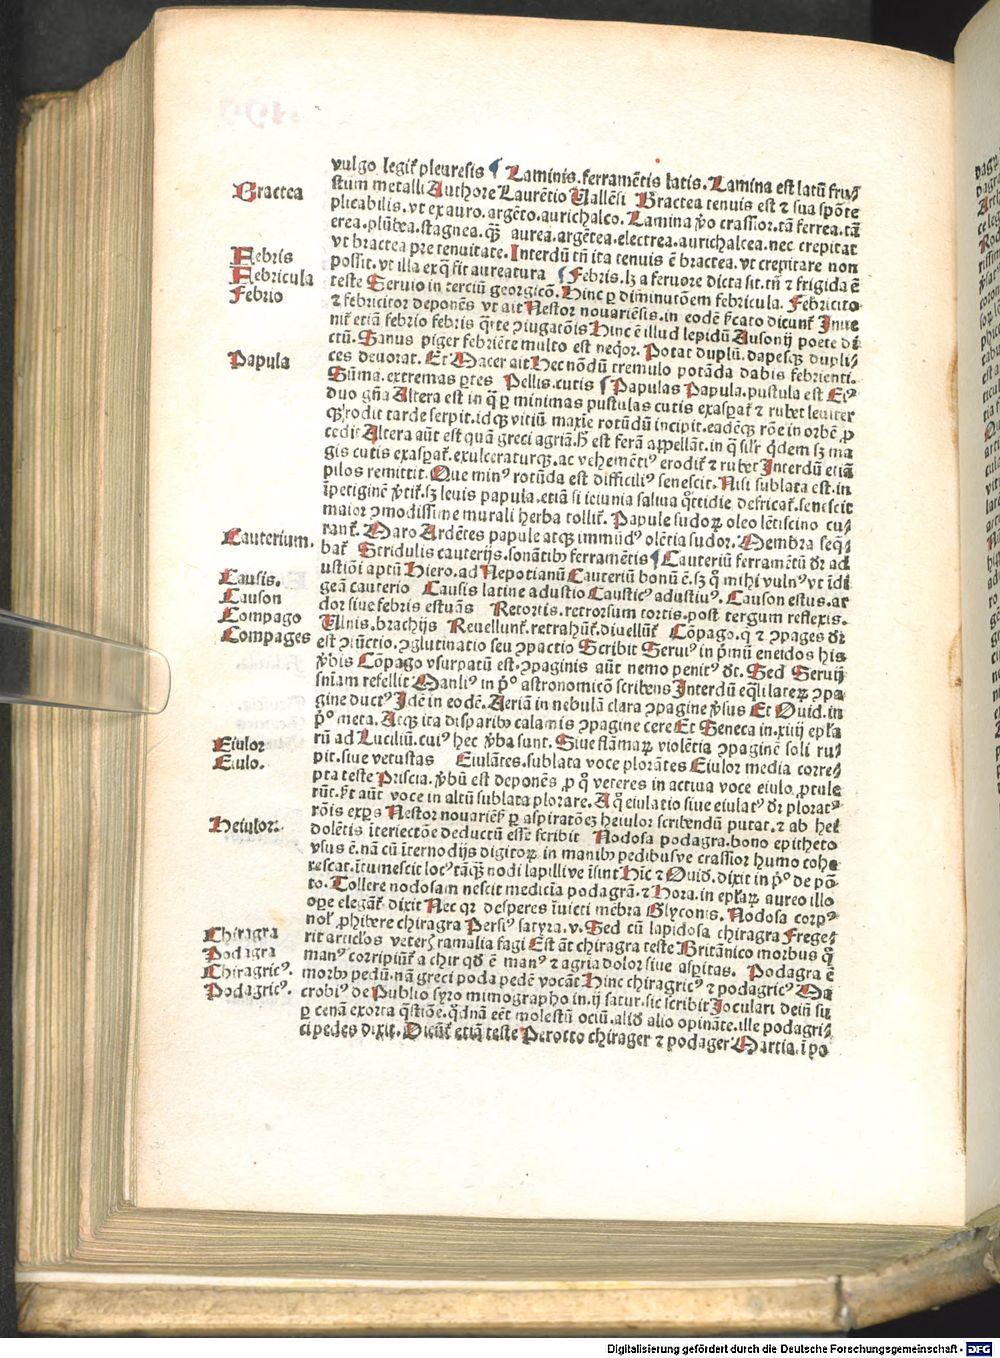 vulgo legit᷑ pleuresis ⸿ Laminis.ferramētis latis.Lamina est latū fru⸗
Bractea
stum metalli Authore Laurētio Vallēsi Bractea tenuis est ⁊ sua spōte
plicabilis.vt ex auro.argēto.aurichalco.Lamina ꝟo crassior.tā ferrea.tā
erea.plūbea.stagnea.qꝫ aurea.argētea.electrea.aurichalcea.nec crepitat
vt bractea pre tenuitate.Interdū tn̄ ita tenuis ē bractea.vt crepitare non
Febris
possit.vt illa ex q̄ fit aureatura ⸿ Febris.lꝫ a feruore dicta sit.tn̄ ⁊ frigida ē
Febricula
teste Seruio in terciū georgicō.Hinc ꝑ diminutōem febricula. Febricito
Febrio
⁊ febricitor deponēs vt ait Nestor nouariēsis.in eodē ẜcato dicunt᷑ Inue
nit᷑ etiā febrio febris q̄rte ꝯiugatōis Hinc ē illud lepidū Ausonij poete di
ctū.Sanus piger febriēte multo est neqͦr. Potat duplū.dapesqꝫ dupli⸗
Papula
ces deuorat. Et Macer ait Hec nōdū tremulo potāda dabis febrienti.
Sūma.extremas ꝑtes Pellis.cutis ⸿ Papulas Papula.pustula est Eiꝰ
duo gn̄a Altera est in q̄ ꝑ minimas pustulas cutis exasꝑat᷑ ⁊ rubet leuiter
qꝫ rodit tarde serpit.idqꝫ vitiū maxīe rotūdū incipit.eadēqꝫ rōe in orbē ꝓ
cedit Altera aūt est quā greci agriā.hͨ est ferā appellāt.in q̄ silr̄ qͥdem sꝫ ma
gis cutis exasꝑat᷑.exulceraturqꝫ.ac vehemētiꝰ erodit᷑ ⁊ rubet Interdū etiā
pilos remittit.Que minꝰ rotūda est difficiliꝰ senescit.Nisi sublata est.in
īpetiginē ꝟtit᷑.sꝫ leuis papula.etiā si ieiunia saliua qͦttidie defricat᷑.senescit
maior ꝯmodissime murali herba tollit᷑. Papule sudoꝝ oleo lētiscino cu⸗
Cauterium.
rant᷑. Maro Ardētes papule atqꝫ immūdꝰ olētia sudor. Membra seq̄⸗
bat᷑ Stridulis cauterijs.sonātibꝫ ferramētis ⸿ Cauteriū ferramētū dr̄ ad
ustiōi aptū Hiero.ad Nepotianū Cauteriū bonū ē.sꝫ qͦ mihi vulnꝰ vt īdi
Causis.
geā cauterio Causis latine adustio Causticꝰ adustiuꝰ. Causon estus.ar
Causon
dor siue febris estuās Retortis.retrorsum tortis.post tergum reflexis.
Compago
Vlnis.brachijs Reuellunt᷑.retrahūt᷑.diuellūt᷑ Cōpago.q̄ ⁊ ꝯpages dr̄
Compages
est ꝯiūctio.ꝯglutinatio seu ꝯpactio Scribit Seruiꝰ in pͥmū eneidos his
ꝟbis Cōpago vsurpatū est.ꝯpaginis aūt nemo penitꝰ dt᷑. Sed Seruij
snīam refellit Manliꝰ in pͦ astronomicō scribens Interdū eq̄li lateꝝ ꝯpa
gine ductꝰ Idē in eodē.Aeriā in nebulā clara ꝯpagine ꝟsus Et Ouid.in
pͦ meta. Atqꝫ ita disparibꝫ calamis ꝯpagine cere Et Seneca in.xiiij epl̄a
Eiulor
rū ad Luciliū.cuiꝰ hec ꝟba sunt. Siue flāmaꝝ violētia ꝯpaginē soli ru⸗
Eiulo.
pit.siue vetustas Eiulātes.sublata voce plorātes Eiulor media corre⸗
pta teste Priscia.ꝟbū est deponēs ꝓ qͦ veteres in actiua voce eiulo ꝓtule
rūt.ẜt aūt voce in altū sublata plorare. A qͦ eiulatio siue eiulatꝰ dr̄ ploratꝰ
Heiulor.
rōis exꝑs Nestor nouariēs᷑ ꝑ aspiratōeꝫ heiulor scribendū putat.⁊ ab hei
dolētis īteriectōe deductū esse᷑ scribit Nodosa podagra.bono epitheto
vsus ē.nā cū īternodijs digitoꝝ in manibꝫ pedibusve crassior humo cohe
rescat.ītumescit locꝰ tāqꝫ nodi lapilli ve īsint Hīc ⁊ Ouid. dixit in pͦ de pō⸗
to. Tollere nodosam nescit medicīa podagrā.⁊ Hora.in epl̄aꝝ aureo illo
oꝑe elegāt᷑ dixit Nec qꝛ desperes īuicti mēbra Glyconis. Nodosa corpꝰ
Chiragra
nol᷑ ꝓhibere chiragra Persiꝰ satyra.v.Sed cū lapidosa chiragra Frege⸗
Podagra
rit articlos veteris ramalia fagi Est āt chiragra teste Britānico morbus qͦ
Chiragricꝰ.
manꝰ corripiūt᷑ a chir qd̄ ē manꝰ ⁊ agria dolor siue asꝑitas. Podagra ē
Podagricꝰ.
morbꝰ pedū.nā greci poda pedē vocāt Hinc chiragricꝰ ⁊ podagricꝰ Ma
crobiꝰ de Publio syro mimographo in.ij satur.sic scribit Ioculari dein̄ su
ꝑ cenā exorta q̄stiōe.qͥdnā eēt molestū ociū.aliꝰ alio opināte.ille podagri⸗
ci pedes dixit. Dicūt᷑ etiā teste Perotto chirager ⁊ podager Martia.ī po
Digitalisierung gefördert durch die Deutsche Forschungsgemeinschaft - DFG